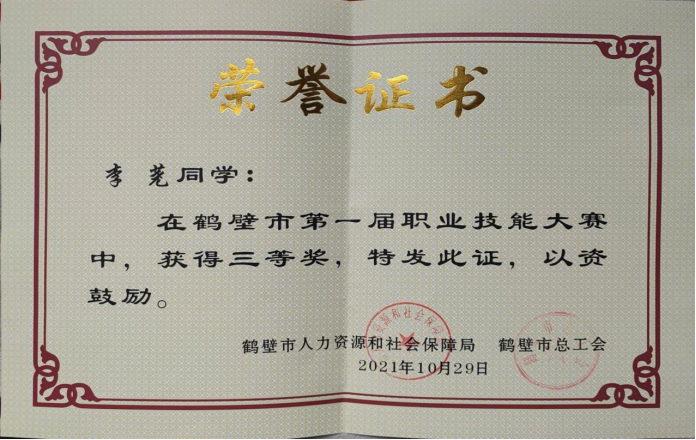 荣誉证书
李 莌同学：
在鹤壁市第一届职业技能大赛
中，获得三等奖，特发此证，以资
鼓励。
鹤壁市人力资源和社会保障局 鹤壁市总工会
2021年10月29日